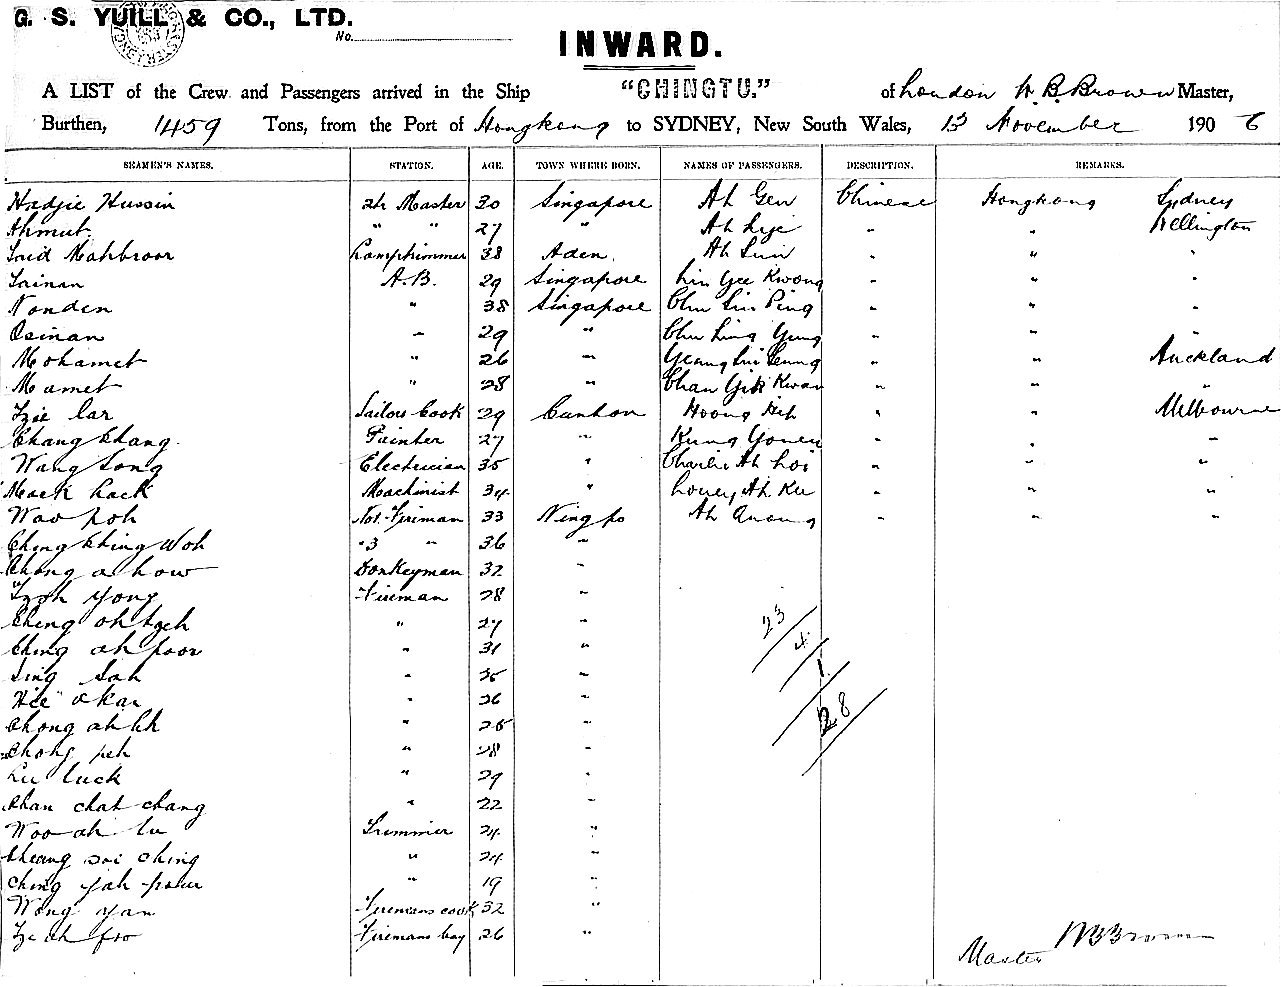 G. S. YUILL & CO., LTD.
No.
INWARD.
A LIST of the Crew and Passengers arrived in the Ship "CHINGTU." of London W. B. Brown Master,
Burthen, 1459 Tons, from the Port of Hongkong to SYDNEY, New South Wales, 13 November 190 6
SEAMEN'S NAMES. STATION. AGE. TOWN WHERE BORN. NAMES OF PASSENGERS. DESCRIPTION. REMARKS.
Hadjie Hussin 30 Singapore Ah Gen Chinese Hongkong Sydney
Ahmut " " 27 " Ah " " Wellington
Said Lamptrimmer 38 Aden Ah " " "
Sainan A.B. 29 Singapore Lin Gee Kwong " " "
Nonden " 38 Singapore Chu Lin Ping " " "
Osinan " 29 " Chu Ling Yung " " "
Mohamet " 26 " " " Auckland
Mamet " 28 " Chan Yik Kwan " " "
Tzie Car Sailors Cook 29 Canton Hoong " " Melbourne
Chang Chang Painter 27 " Kung " " "
Wang Song Electrician 35 " Charlie Ah Loi " " "
Mack hack Machinist 34 " Louey Ah Ku " " "
Woo poh No1 Fireman 33 Ningpo Ah Quong " " "
Ching Ching Woh "3 " 36 "
Chong a how Donkeyman 32 "
Tzoh Yong Fireman 28 "
Cheng oh tzeh " 27 "
Ching ah poor " 31 "
Ling Sah " 25 "
" 26 "
Chong ah " 25 "
Chong peh " 28 "
Lu luck " 29 "
Chan chat chang " 22 "
Woo ah lu Trimmer 24 "
Cheang sai ching " 24 "
Ching yah " 19 "
Wong Yan Firemans cook 32 "
Tze ah foo Firemans boy 26 "
23
4
1
28
W B Brown
Master